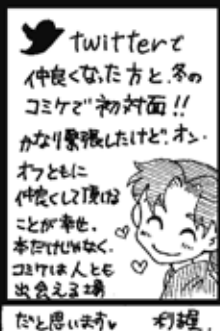 twitterで
仲良くなった方と、冬の
コミケで初対面!!
かなり緊張したけど、オン・
オフともに
仲良くして頂ける
ことが幸せ。
本だけじゃなく、
コミケは人とも
出会える場
だと思います♥